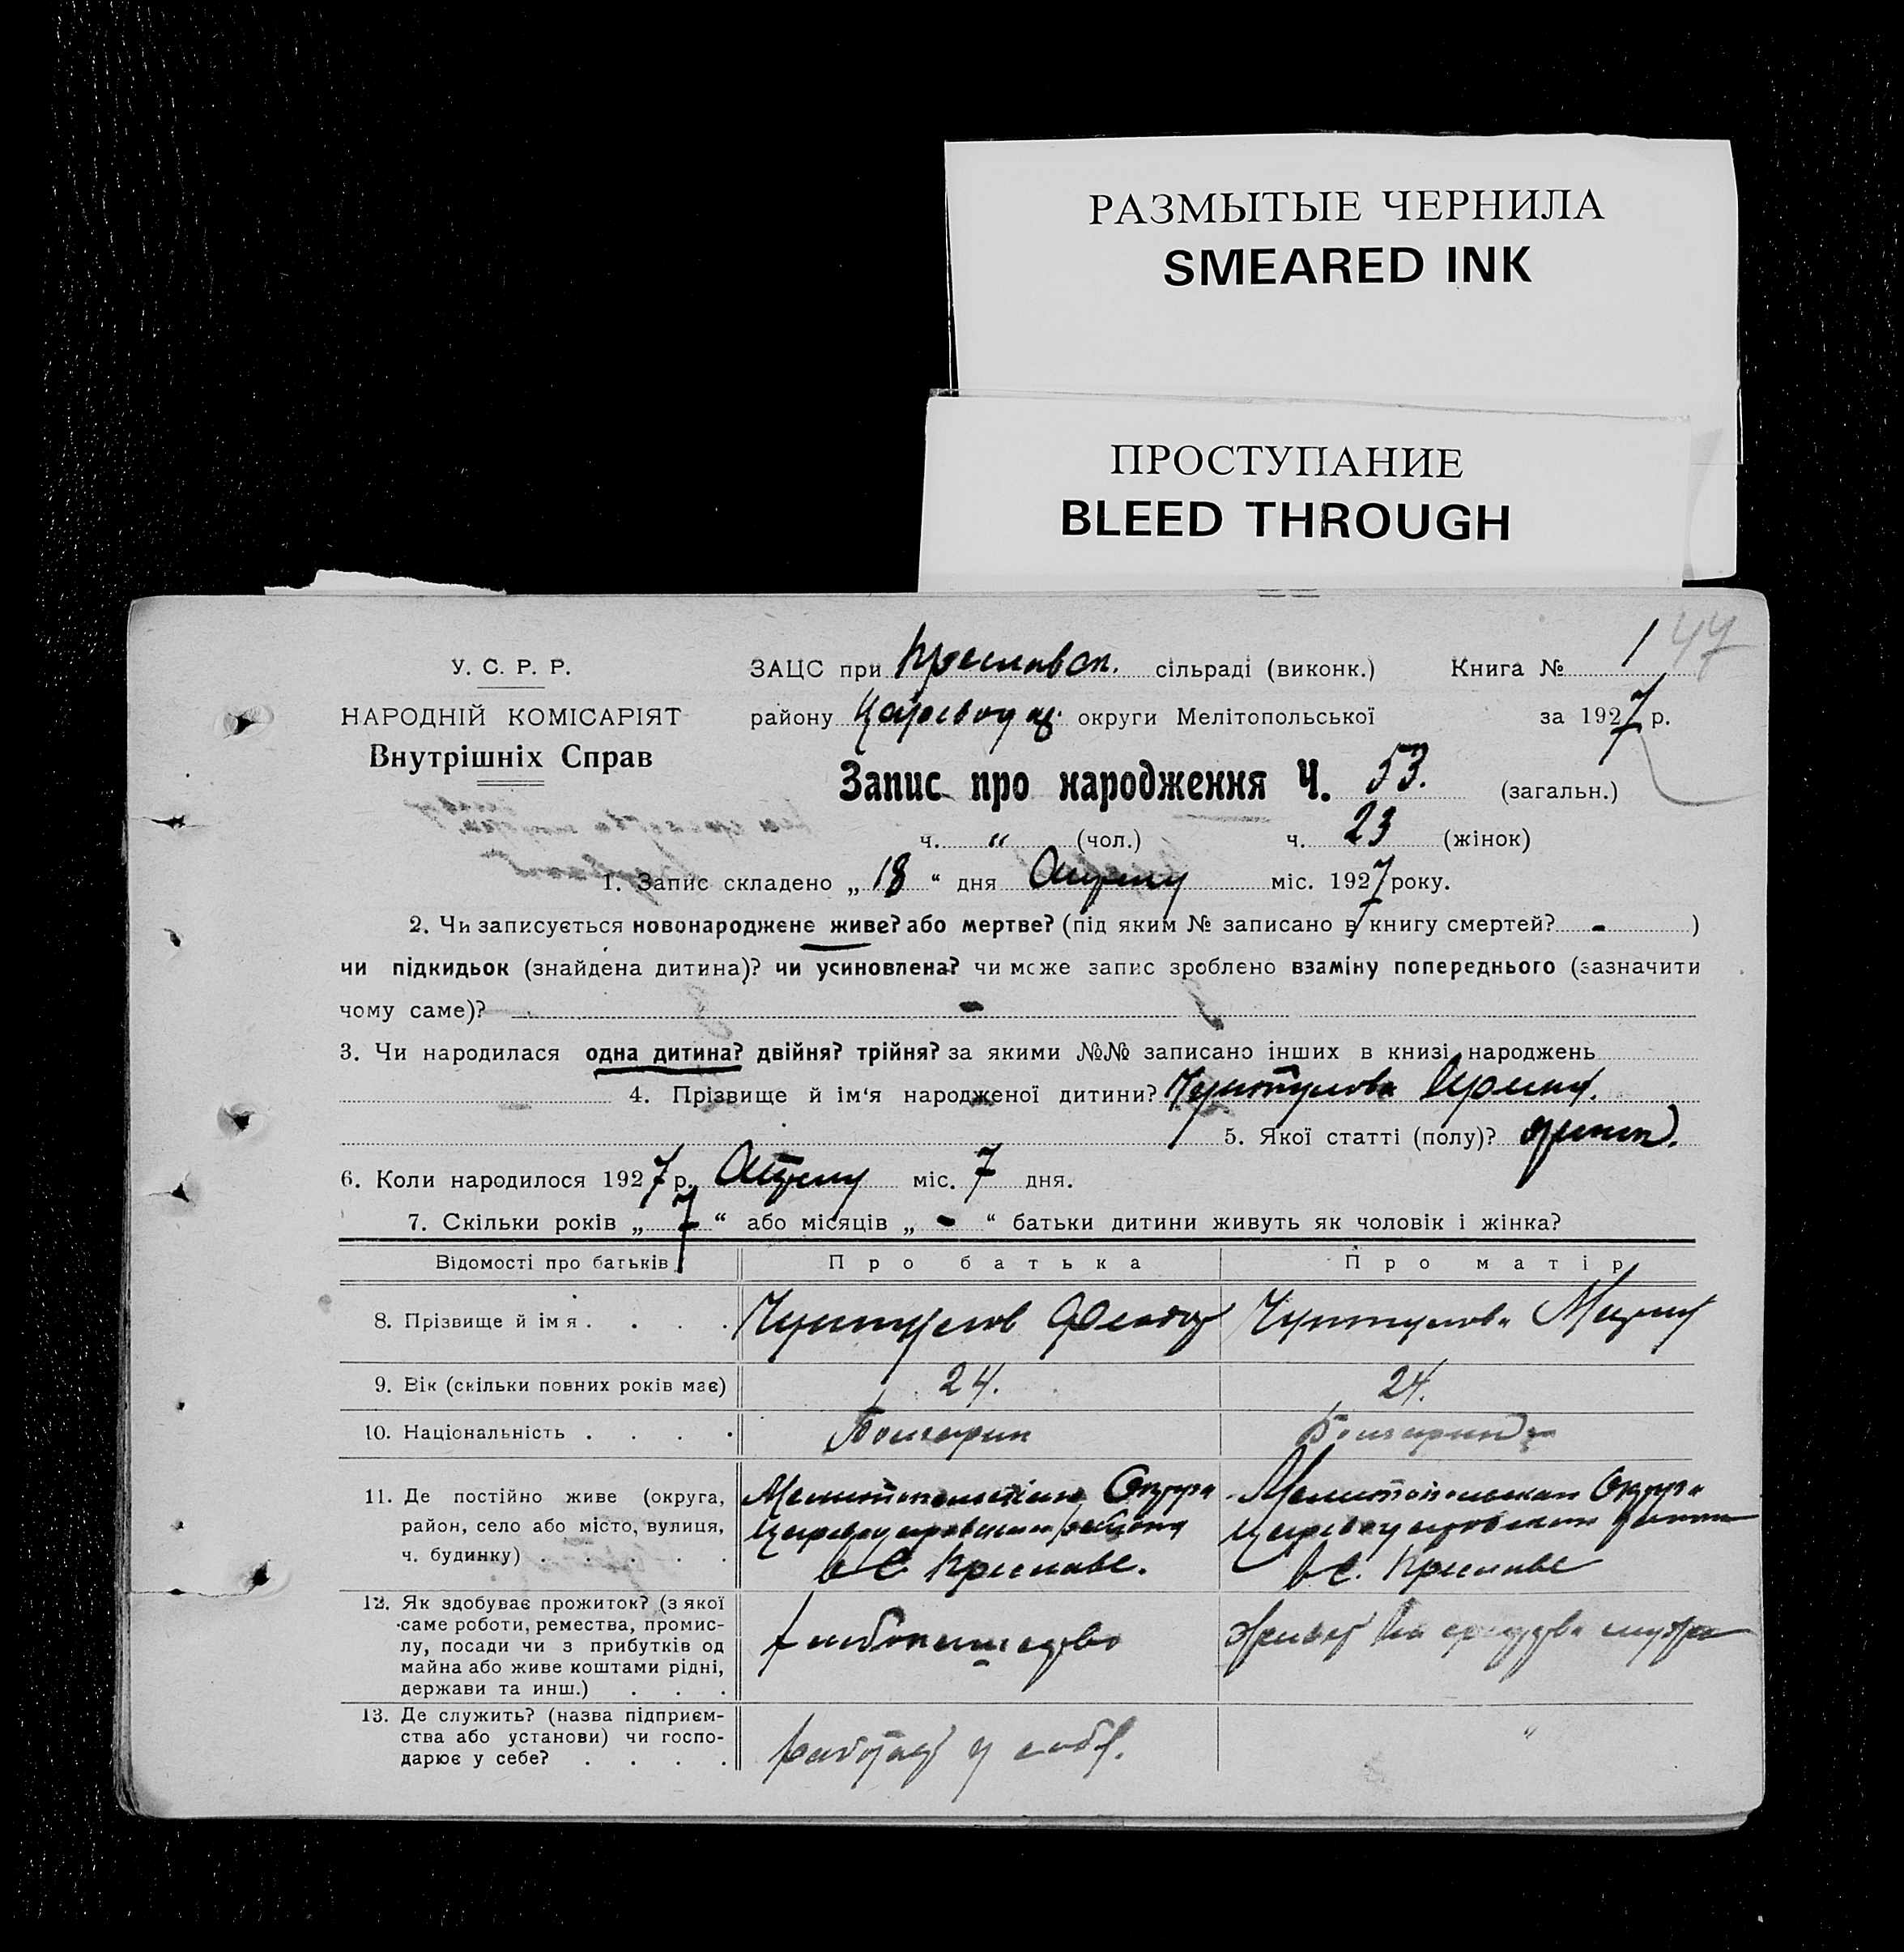 РАЗМЫТЫЕ ЧЕРНИЛА
SMEARED INK
ПРОСТУПАНИЕ
BLEED THROUGH
1 47
У. С. Р. Р.
НАРОДНІЙ КОМІСАРІЯТ
Внутрішніх Справ
ЗАЦС при сільраді (виконк.) Книга №
району округи Мелітопольської за 1927 р.
Запис про народження Ч. 53. (загальн.)
ч. " (чол.) ч. 23 (жінок)
1. Запис складено „ 18 “ дня Апреля міс. 1927 року.
2. Чи записується новонароджене живе? або мертве? (під яким № записано в книгу смертей? - )
чи підкидьок (знайдена дитина)? чи усиновлена? чи може запис зроблено взаміну попереднього (зазначити
чому саме)? -
3. Чи народилася одна дитина? двійня? трійня? за якими №№ записано інших в книзі народжень
4. Прізвище й ім‘я народженої дитини? Чунтулова Ирина.
5. Якої статті (полу)? женск.
6. Коли народилося 1927 р. Апреля міс. 7 дня.
7. Скільки років „ 7 “ або місяців „ - “ батьки дитини живуть як чоловік і жінка?
Відомості про батьків Про батька Про матір
8. Прізвище й імя . . . . Чунтулов Федор Чунтулова Мария
9. Вік (скільки повних років має) 24. 24.
10. Національність . . . . Болгарин Болгарка
11. Де постійно живе (округа, Мелитопольская Округа Мелитопольская Округа
район, село або місто, вулиця, района
ч. будинку) . . . . . в С. Преславе. в С. Преславе
12. Як здобуває прожиток? (з якої
саме роботи, ремества, промис-
лу, посади чи з прибутків од хлебопашество живет на средства мужа
майна або живе коштами рідні,
держави та инш.) . . .
13. Де служить? (назва підприєм-
ства або установи) чи госпо- работает у себя. "
дарює у себе? . . . .